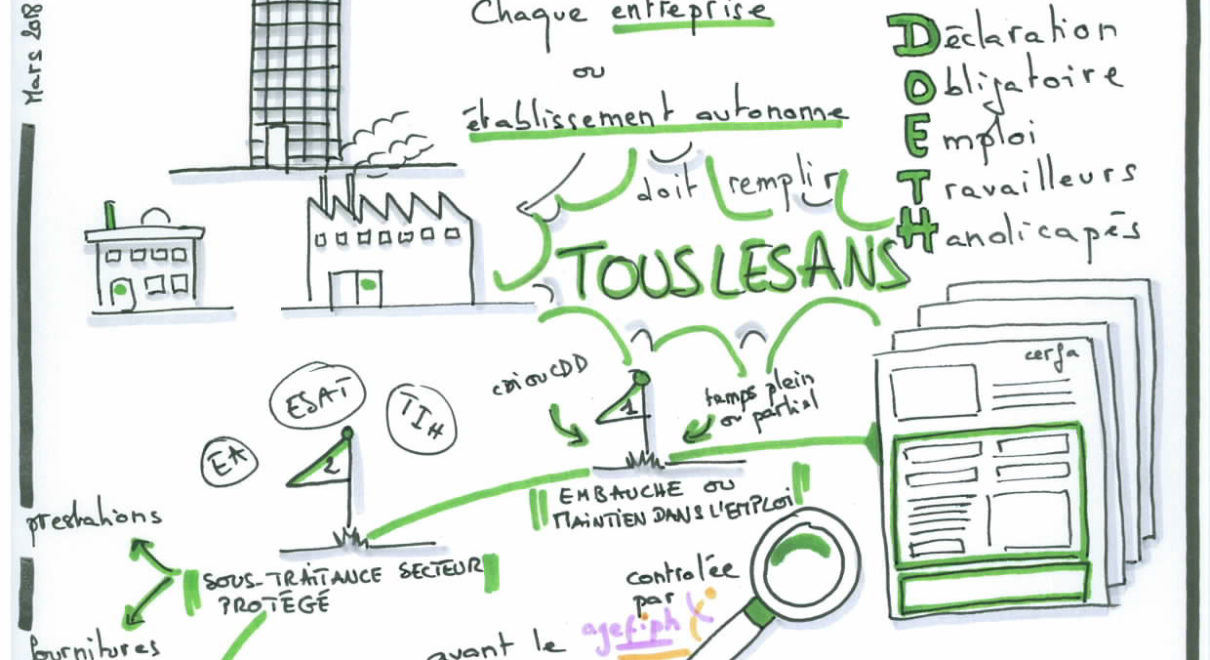 Mars 2018
Chaque entreprise
ou
établissement autonome
doit remplir
TOUS LES ANS
Déclaration
Obligatoire
Emploi
Travailleurs
Handicapés
cerfa
CDI ou CDD
1
temps plein
ou partiel
EMBAUCHE OU
MAINTIEN DANS L'EMPLOI
ESAT
TIH
EA
2
prestations
SOUS-TRAITANCE SECTEUR
PROTÉGÉ
fournitures
contrôlée
par
agefiph
avant le